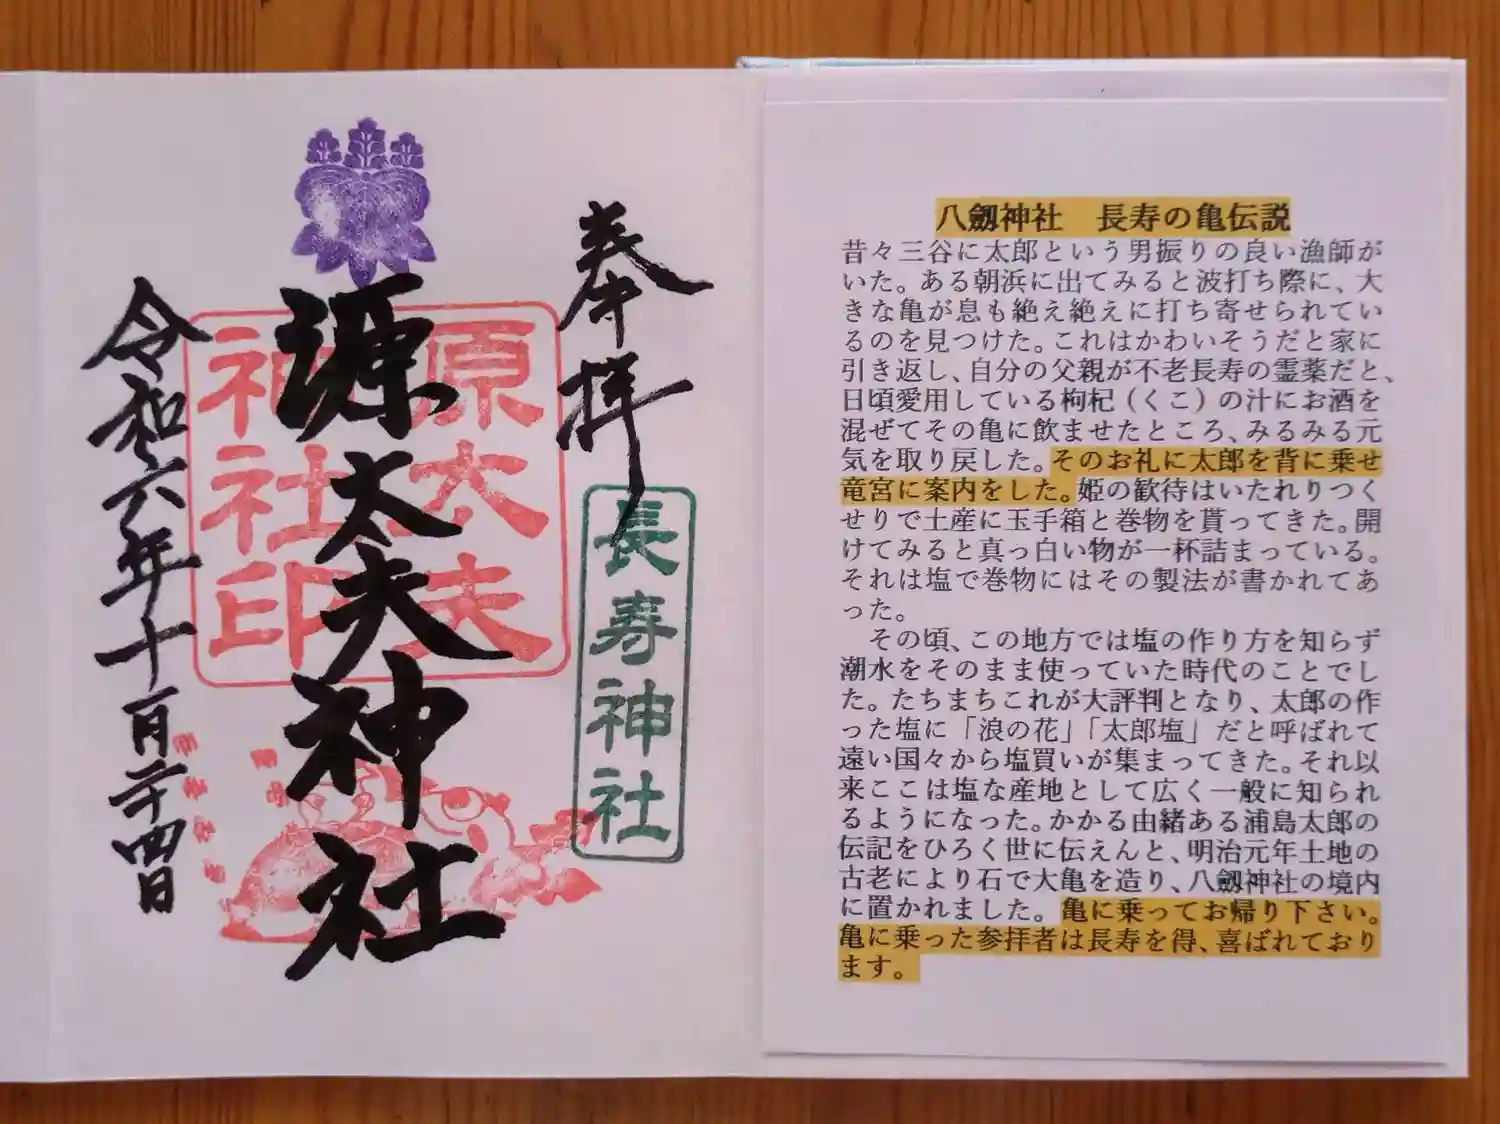 奉拝
長寿神社
原大夫
神社印
源太夫神社
令和六年十月二十四日
八劔神社　長寿の亀伝説
昔々三谷に太郎という男振りの良い漁師が
いた。ある朝浜に出てみると波打ち際に、大
きな亀が息も絶え絶えに打ち寄せられてい
るのを見つけた。これはかわいそうだと家に
引き返し、自分の父親が不老長寿の霊薬だと、
日頃愛用している枸杞（くこ）の汁にお酒を
混ぜてその亀に飲ませたところ、みるみる元
気を取り戻した。そのお礼に太郎を背に乗せ
竜宮に案内をした。姫の歓待はいたれりつく
せりで土産に玉手箱と巻物を貰ってきた。開
けてみると真っ白い物が一杯詰まっている。
それは塩で巻物にはその製法が書かれてあ
った。
　その頃、この地方では塩の作り方を知らず
潮水をそのまま使っていた時代のことでし
た。たちまちこれが大評判となり、太郎の作
った塩に「浪の花」「太郎塩」だと呼ばれて
遠い国々から塩買いが集まってきた。それ以
来ここは塩な産地として広く一般に知られ
るようになった。かかる由緒ある浦島太郎の
伝記をひろく世に伝えんと、明治元年土地の
古老により石で大亀を造り、八劔神社の境内
に置かれました。亀に乗ってお帰り下さい。
亀に乗った参拝者は長寿を得、喜ばれており
ます。